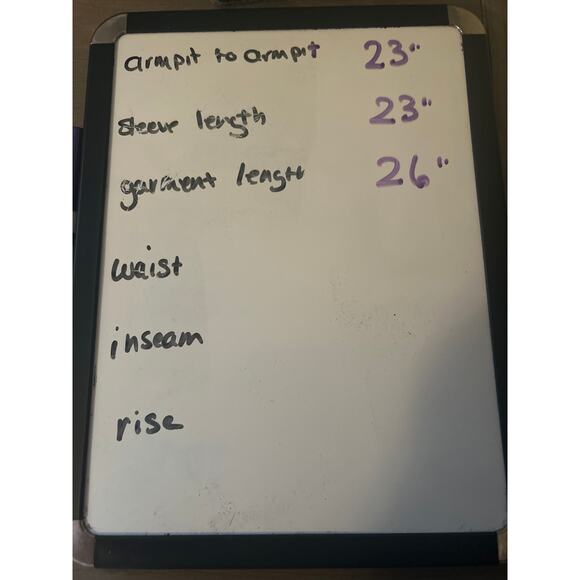 armpit to armpit 23"
sleeve length 23"
garment length 26"
waist
inseam
rise